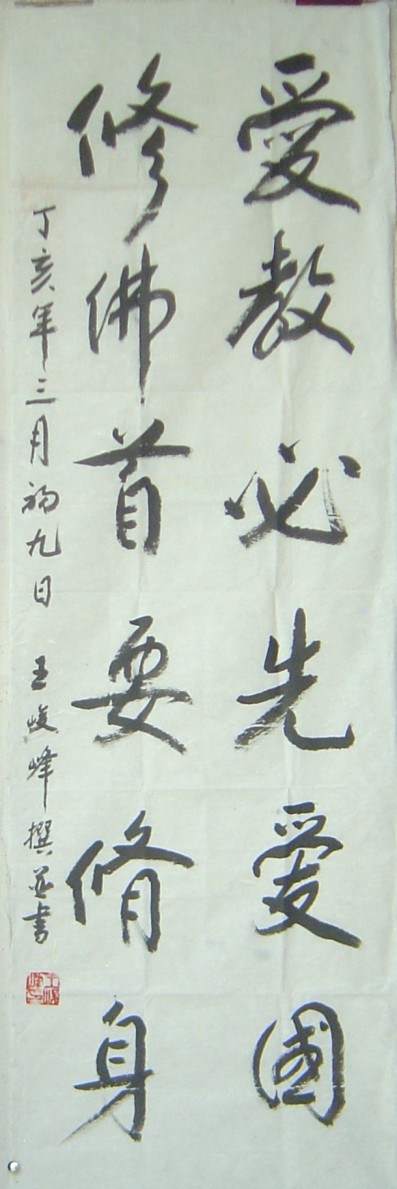 愛教必先愛國
修佛首要脩身
丁亥年三月初九日 王峻峰撰並書